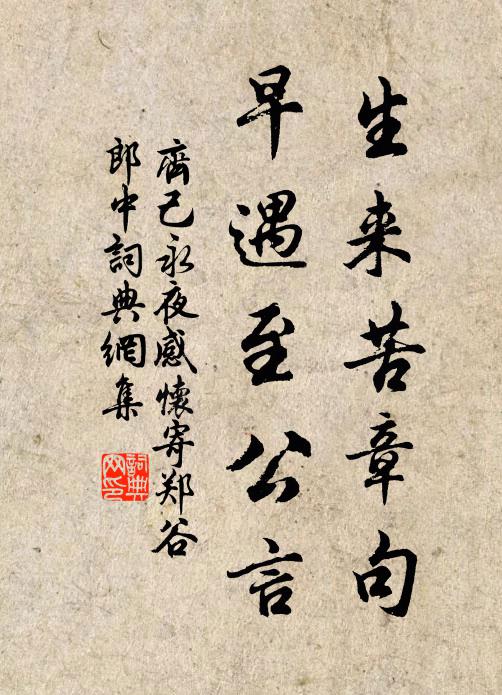 生来苦章句
早遇至公言
齊己永夜感懷寄郑谷
郎中詞典網集
詞典
网印